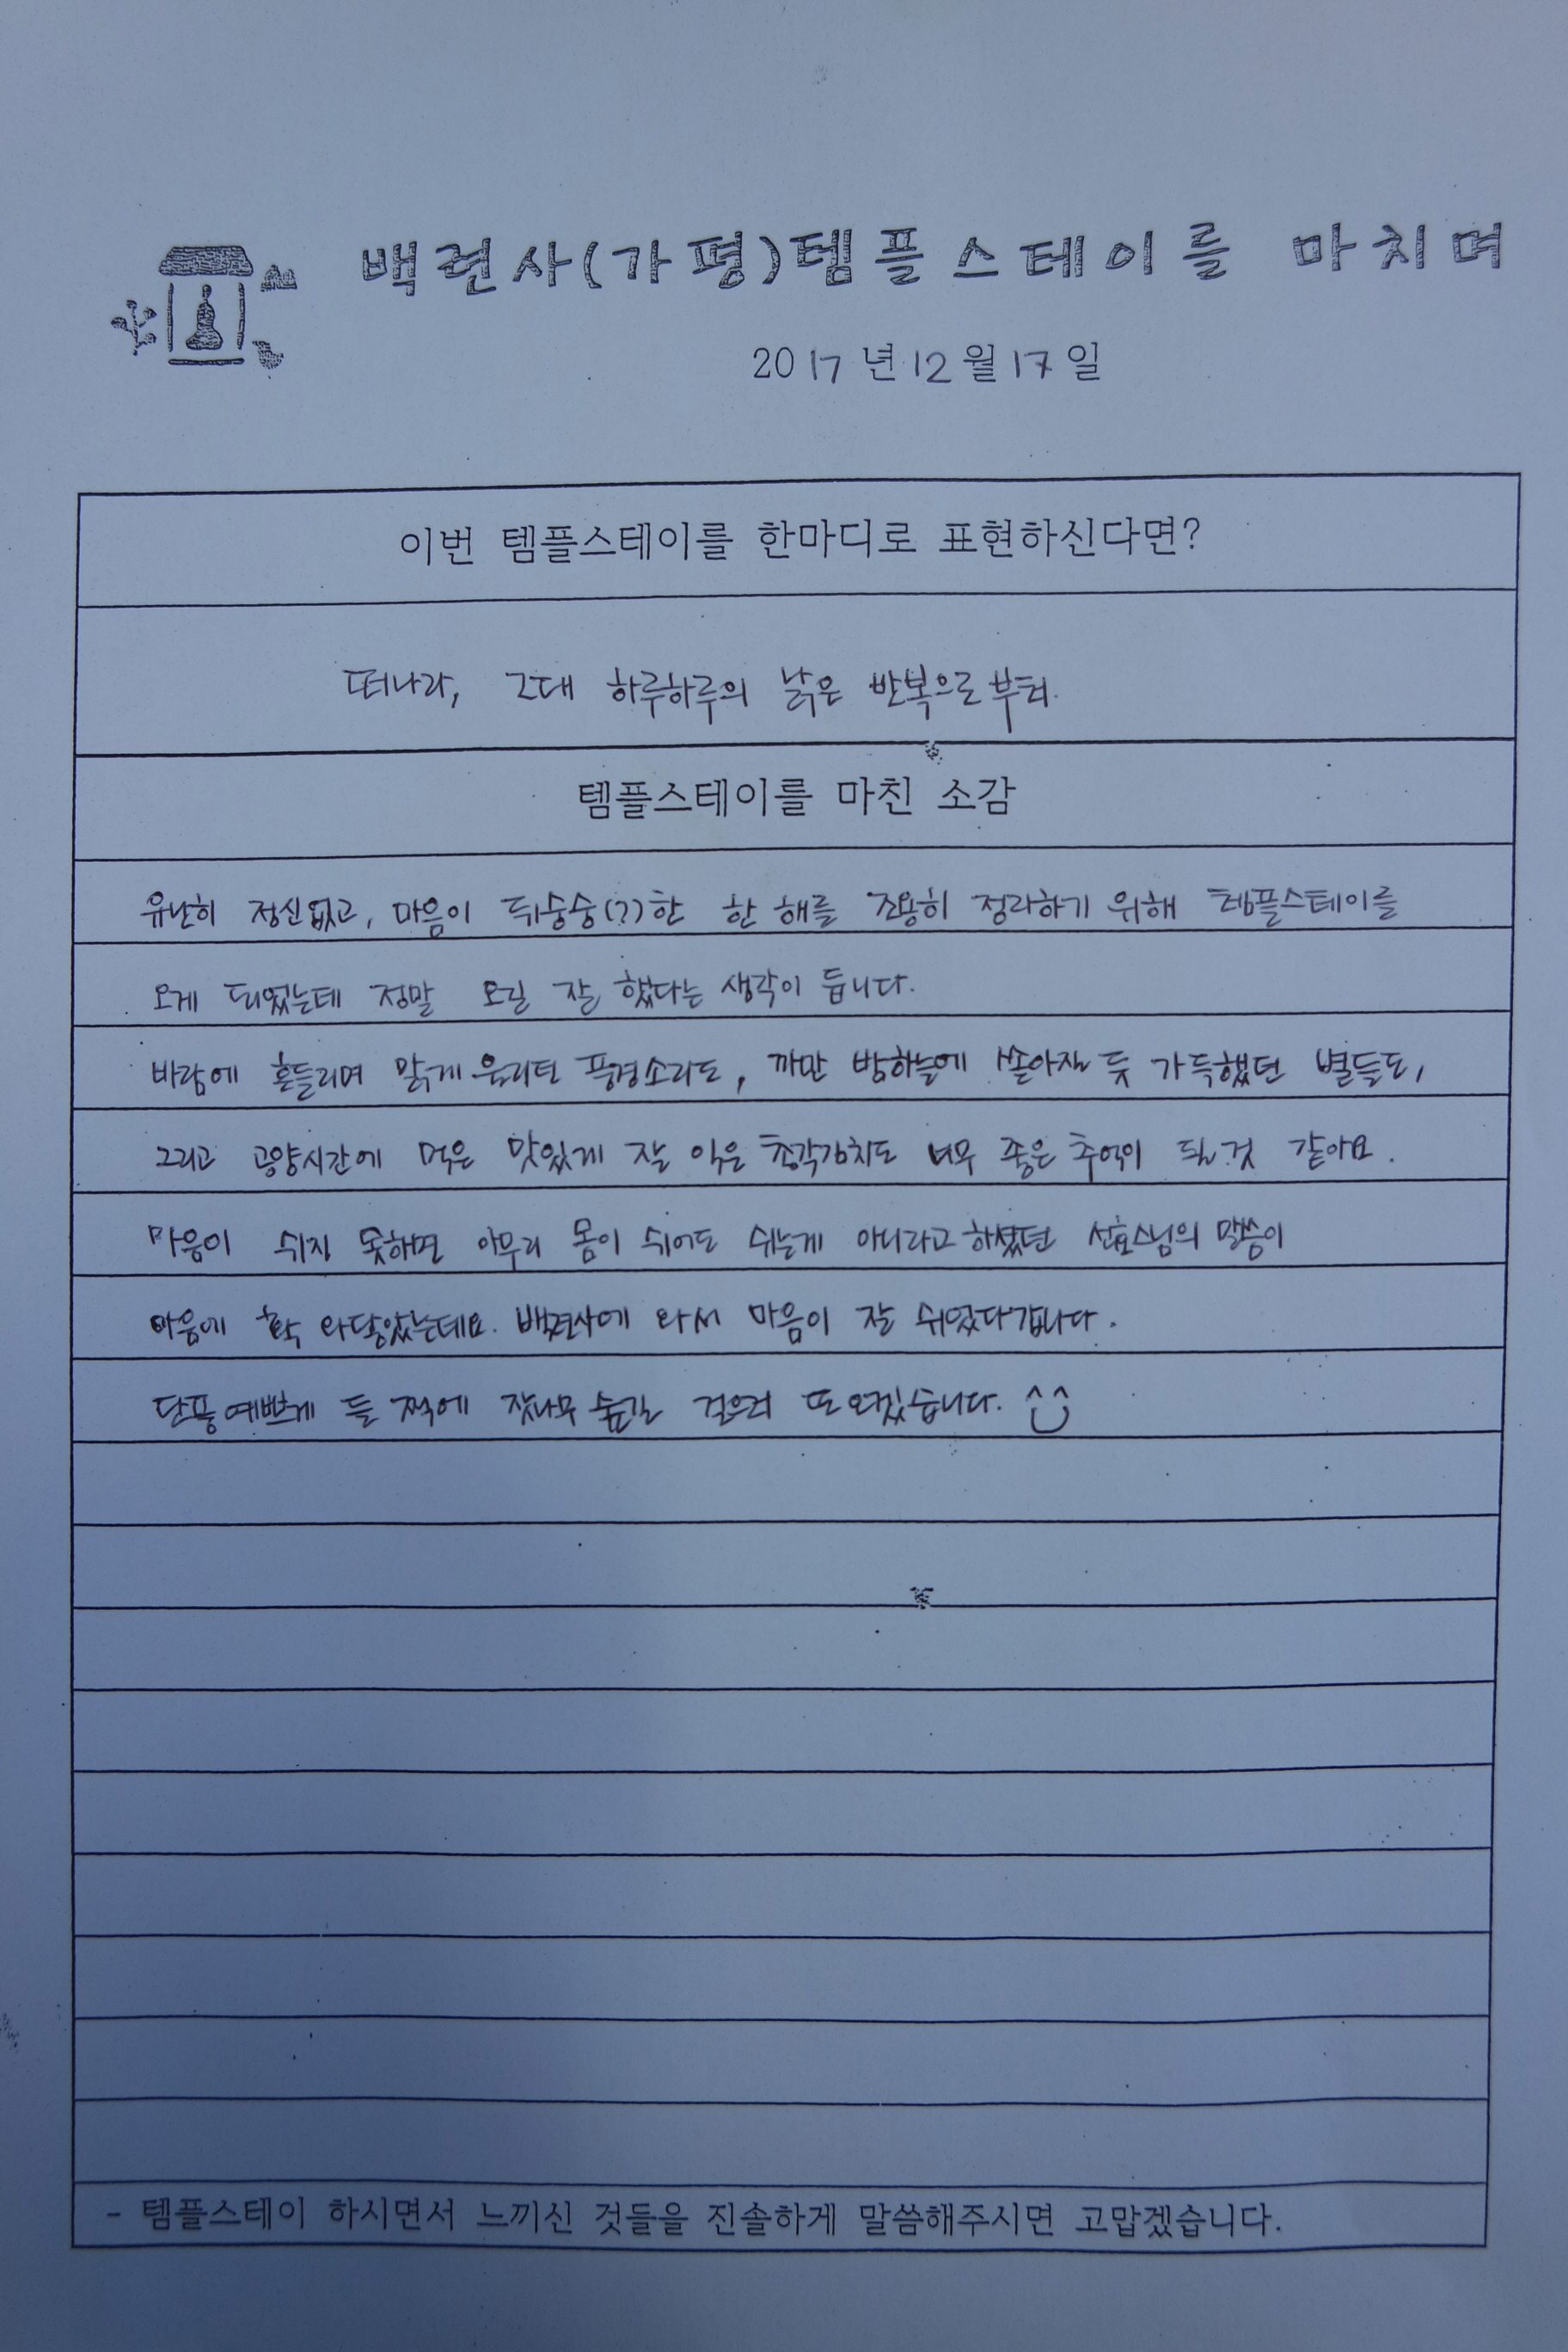 백련사(가평)템플스테이를 마치며
2017년 12월 17일
이번 템플스테이를 한마디로 표현하신다면?
떠나라, 그대 하루하루의 낡은 반복으로부터.
템플스테이를 마친 소감
유난히 정신없고, 마음이 뒤숭숭(?)한 한 해를 조용히 정리하기 위해 템플스테이를
오게 되었는데 정말 오길 잘 했다는 생각이 듭니다.
바람에 흔들리며 맑게 울리던 풍경소리도, 까만 밤하늘에 쏟아질 듯 가득했던 별들도,
그리고 공양시간에 먹은 맛있게 잘 익은 총각김치도 너무 좋은 추억이 될 것 같아요.
마음이 쉬지 못하면 아무리 몸이 쉬어도 쉬는게 아니라고 하셨던 선효스님의 말씀이
마음에 확 와닿았는데요. 백련사에 와서 마음이 잘 쉬었다갑니다.
단풍 예쁘게 들 적에 잣나무 숲길 걸으러 또 오겠습니다. ^^
- 템플스테이 하시면서 느끼신 것들을 진솔하게 말씀해주시면 고맙겠습니다.